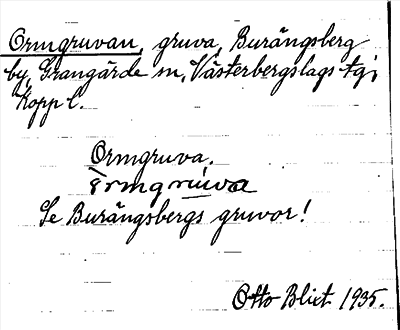 Ormgruvan, gruva, Burängsberg
by, Grangärde sn, Västerbergslags tg;
Kopp l.
Ormgruva.
Se Burängsbergs gruvor!
Otto Blixt 1935.